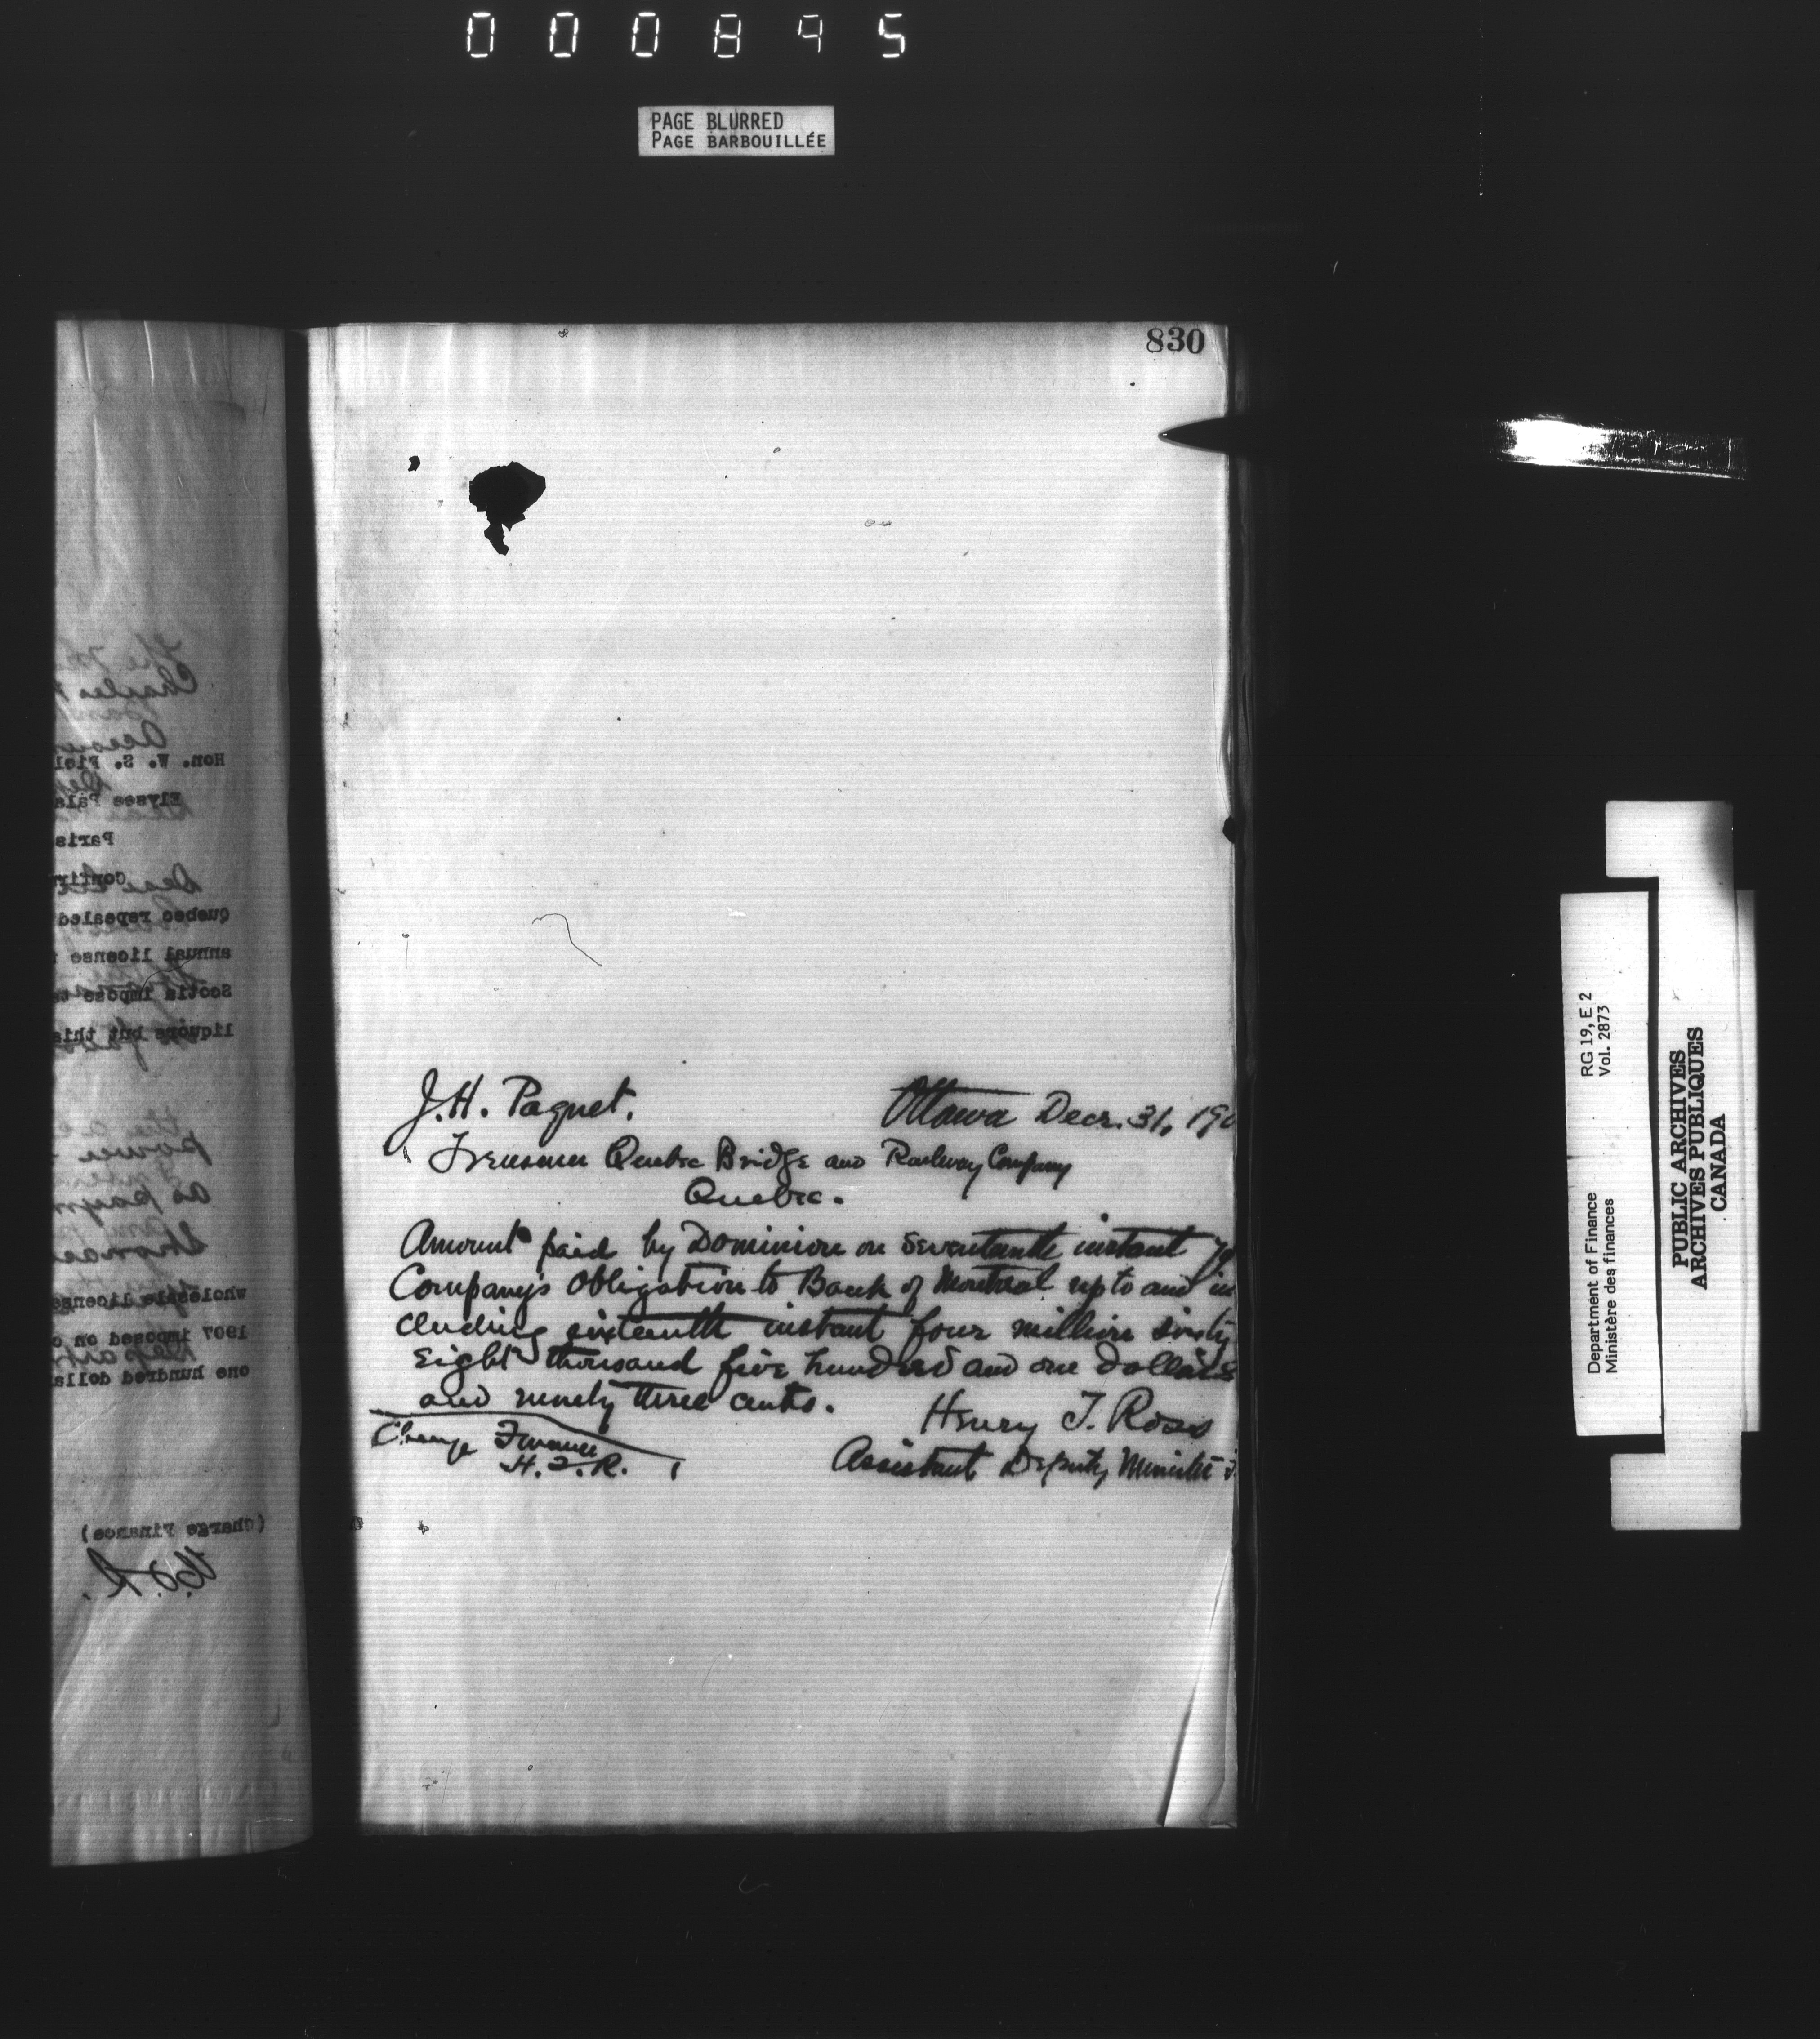 000845
PAGE BLURRED
PAGE BARBOUILLÉE
830
Hon. W. S. Fiel
Elysee Pala
Paris
Confir
Quebec repealed
annual license
Scotia impose ta
liquors but this
wholesale license
1907 imposed on o
one hundred dolla
(Charge Finance)
J. H. Paquet.
Ottawa Decr. 31, 190
Treasurer Quebec Bridge and Railway Company
Quebec.
Amount paid by Dominion on Seventeenth instant
Company's Obligation to Bank of Montreal up to and in
cluding sixteenth instant four million sixty
Eight thousand five hundred and one Dollars
and ninety three cents.
Henry T. Ross
Assistant Deputy Minister
Charge Finance
H.T.R.
RG 19, E 2
Vol. 2873
Department of Finance
Ministère des finances
PUBLIC ARCHIVES
ARCHIVES PUBLIQUES
CANADA